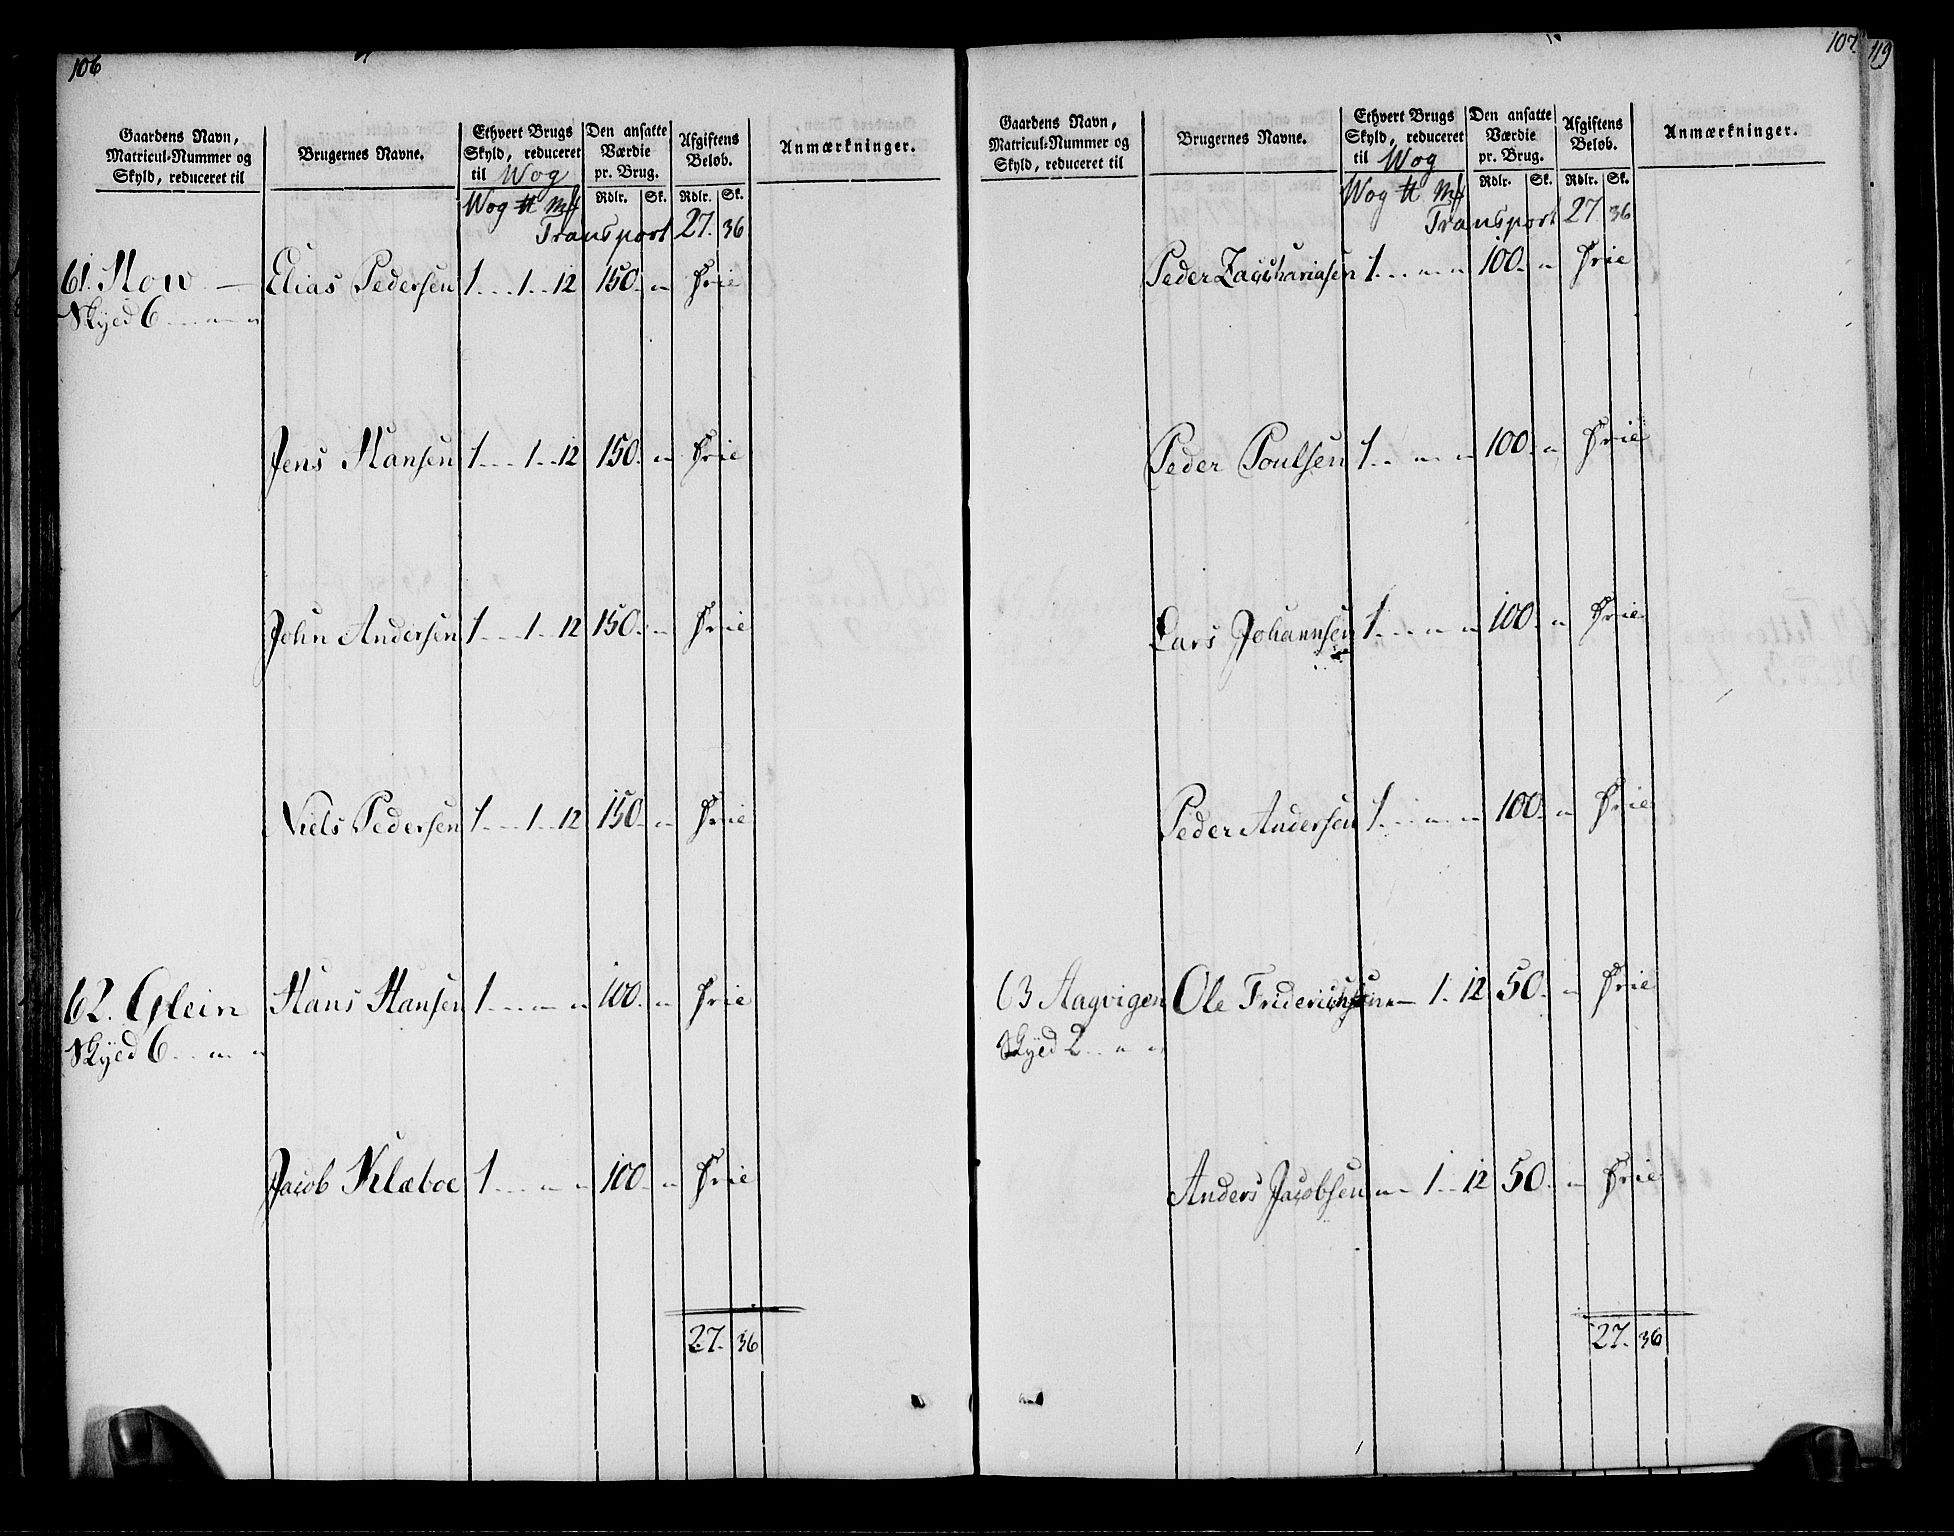 106
Gaardens Navn, Matricul-Nummer og Skyld, reduceret til | Brugernes Navne. | Ethvert Brugs Skyld, reduceret til Wog | Den ansatte Værdie pr. Brug. | Afgiftens Beløb. | Anmærkninger.
Wog ℔ Mk | Rdlr. | Sk. | Rdlr. | Sk.
Transport 27. 36
61. How — Elias Pedersen 1 . . . 1 . . 12 150. " Frie
Skyld 6 . . . " "
Jens Hansen 1 . . . 1 . . 12 150. " Frie
John Andersen 1 . . . 1 . . 12 150. " Frie
Niels Pedersen 1 . . . 1 . . 12 150. " Frie
62. Glein Hans Hansen 1 . . . " " 100. " Frie
Skyld 6 . . . " "
Jacob Klæboe 1 . . . " " 100. " Frie
27. 36
107. 119
Gaardens Navn, Matricul-Nummer og Skyld, reduceret til | Brugernes Navne. | Ethvert Brugs Skyld, reduceret til Wog | Den ansatte Værdie pr. Brug. | Afgiftens Beløb. | Anmærkninger.
Wog ℔ Mk | Rdlr. | Sk. | Rdlr. | Sk.
Transport 27 36
Peder Zacchariasen 1 . . . " " 100. " Frie
Peder Poulsen 1 . . . " " 100. " Frie
Lars Johannsen 1 . . . " " 100. " Frie
Peder Andersen 1 . . . " " 100. " Frie
63 Aagvigen Ole Friderichsen " — 1. 12 50. " Frie
Skyld 2 . . " "
Anders Jacobsen " — 1 . . 12 50. " Frie
27. 36